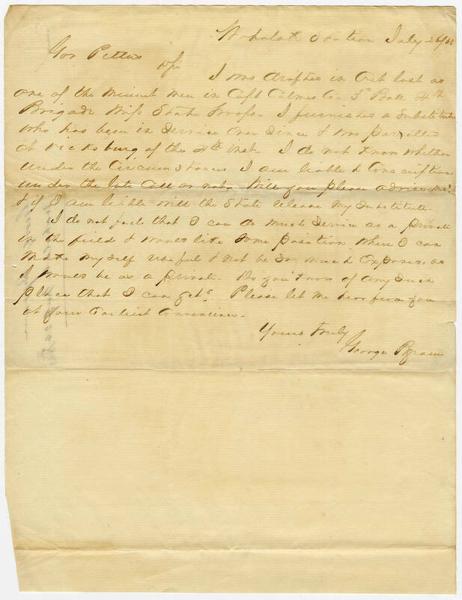 Station July 26/63
Gov Pettus
I was drafted in Oct last as
one of the Minute men in Capt Co 5th Batt 4th
Brigade Miss State Troops I furnished a Substitute
who has been in Service ever since & was parolled
at Vicksburg of the 4th Inst. I do not know whether
under the Circumstances I am liable to Conscription
under the late Call or not. Will you please advise me
& if I am liable will the State release my Substitute
I do not feel that I can do much Service as a private
in the field & would like some position where I can
make my self useful & not be so much Exposed as
I would be as a private. Do you know of any such
place that I can get. Please let me hear from you
at your Earliest Convenience.
Yours truly
George